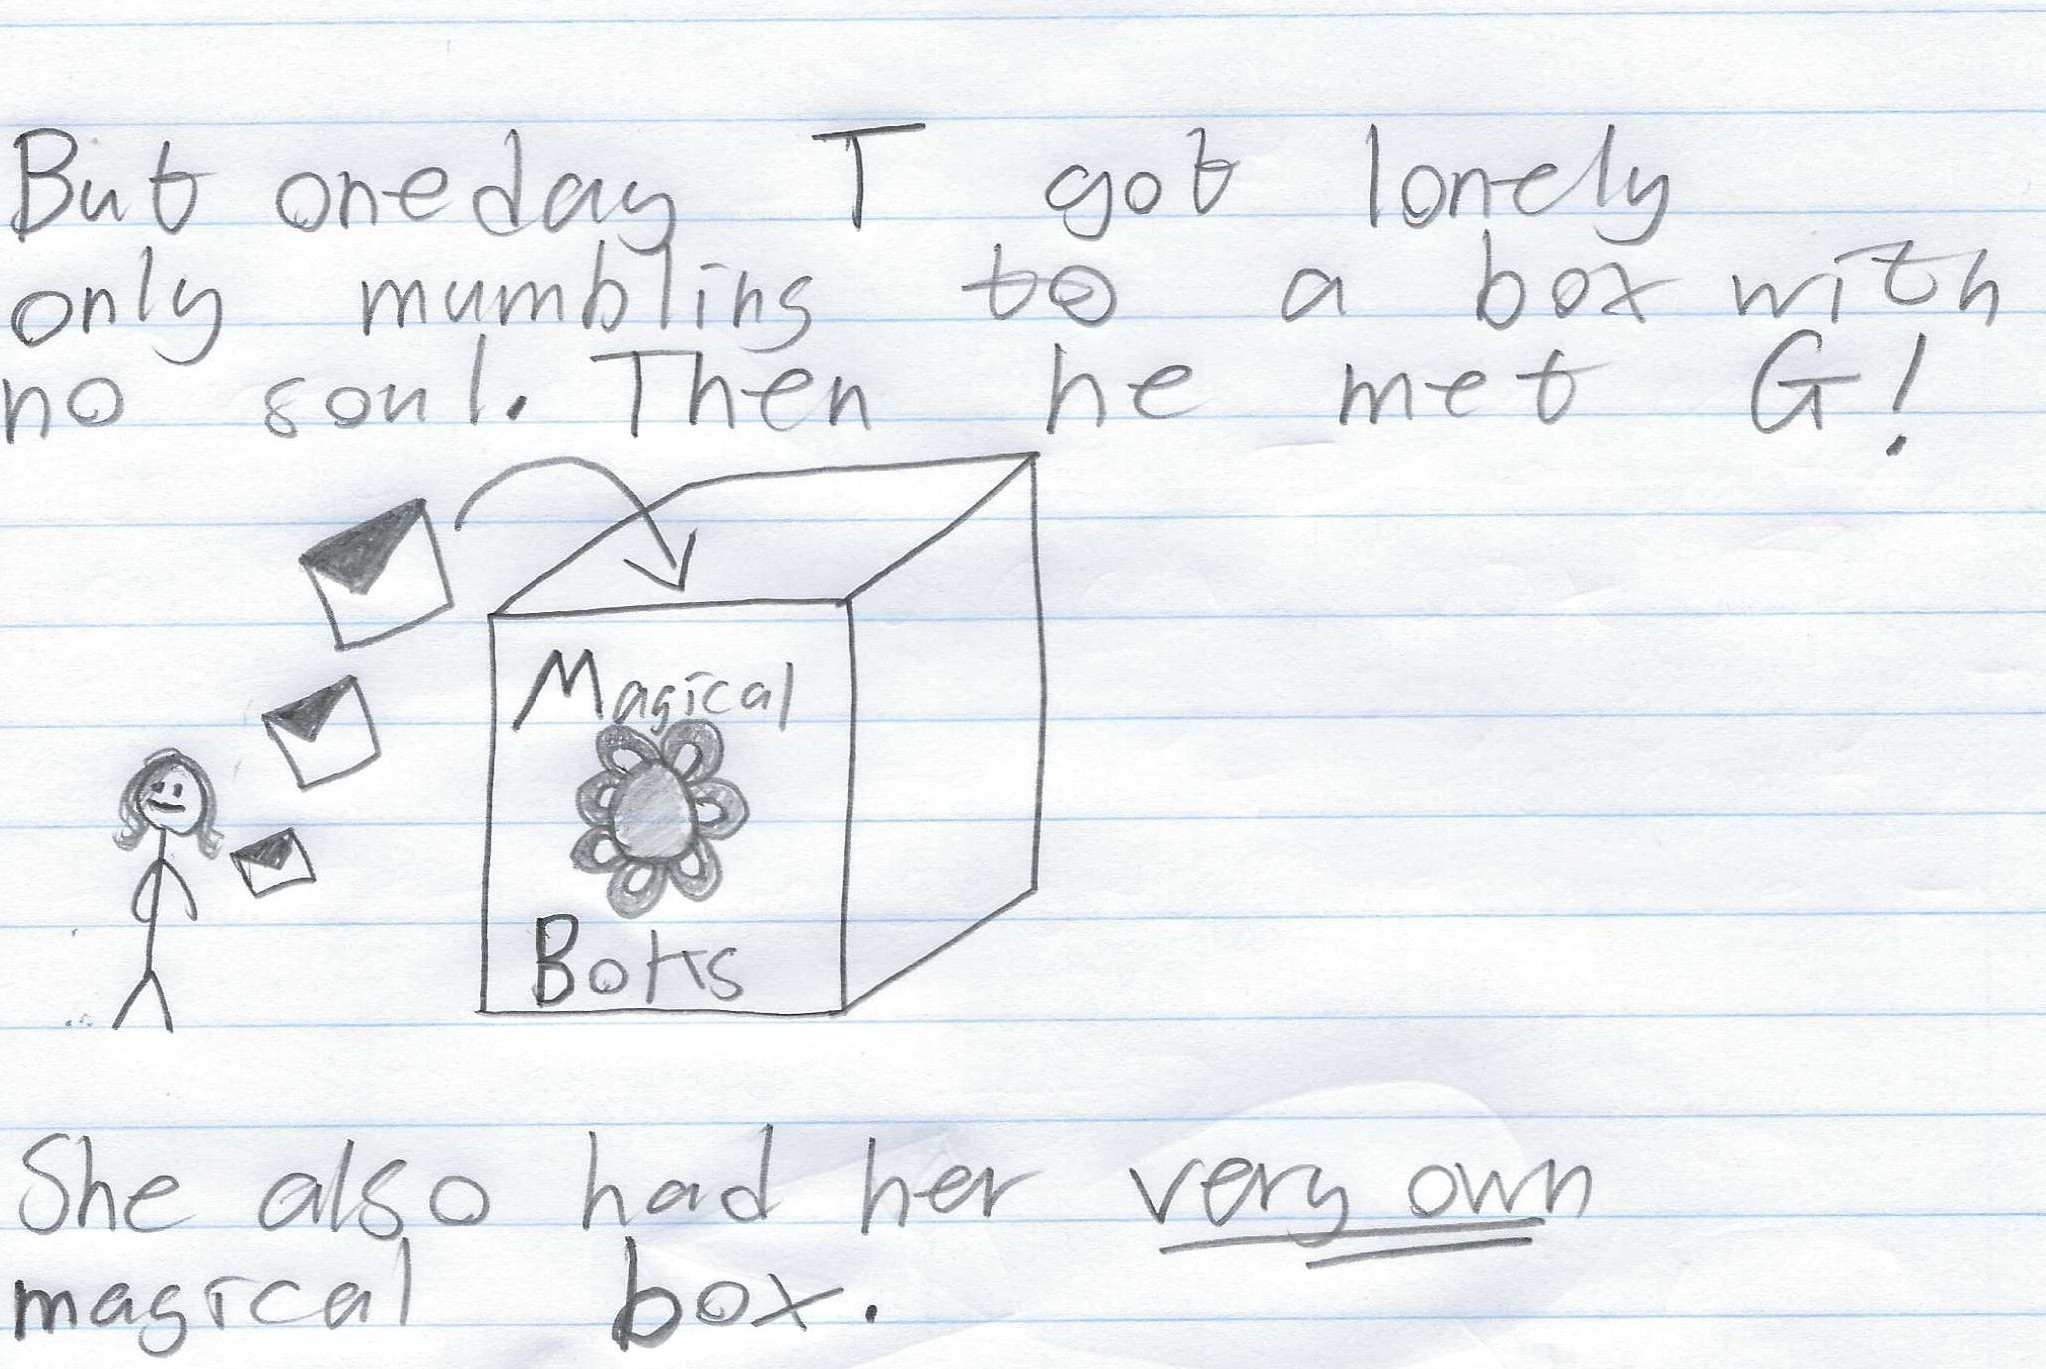 But oneday T got lonely
only mumbling to a box with
no soul. Then he met G!
Magical
Botts
She also had her very own
magical box.